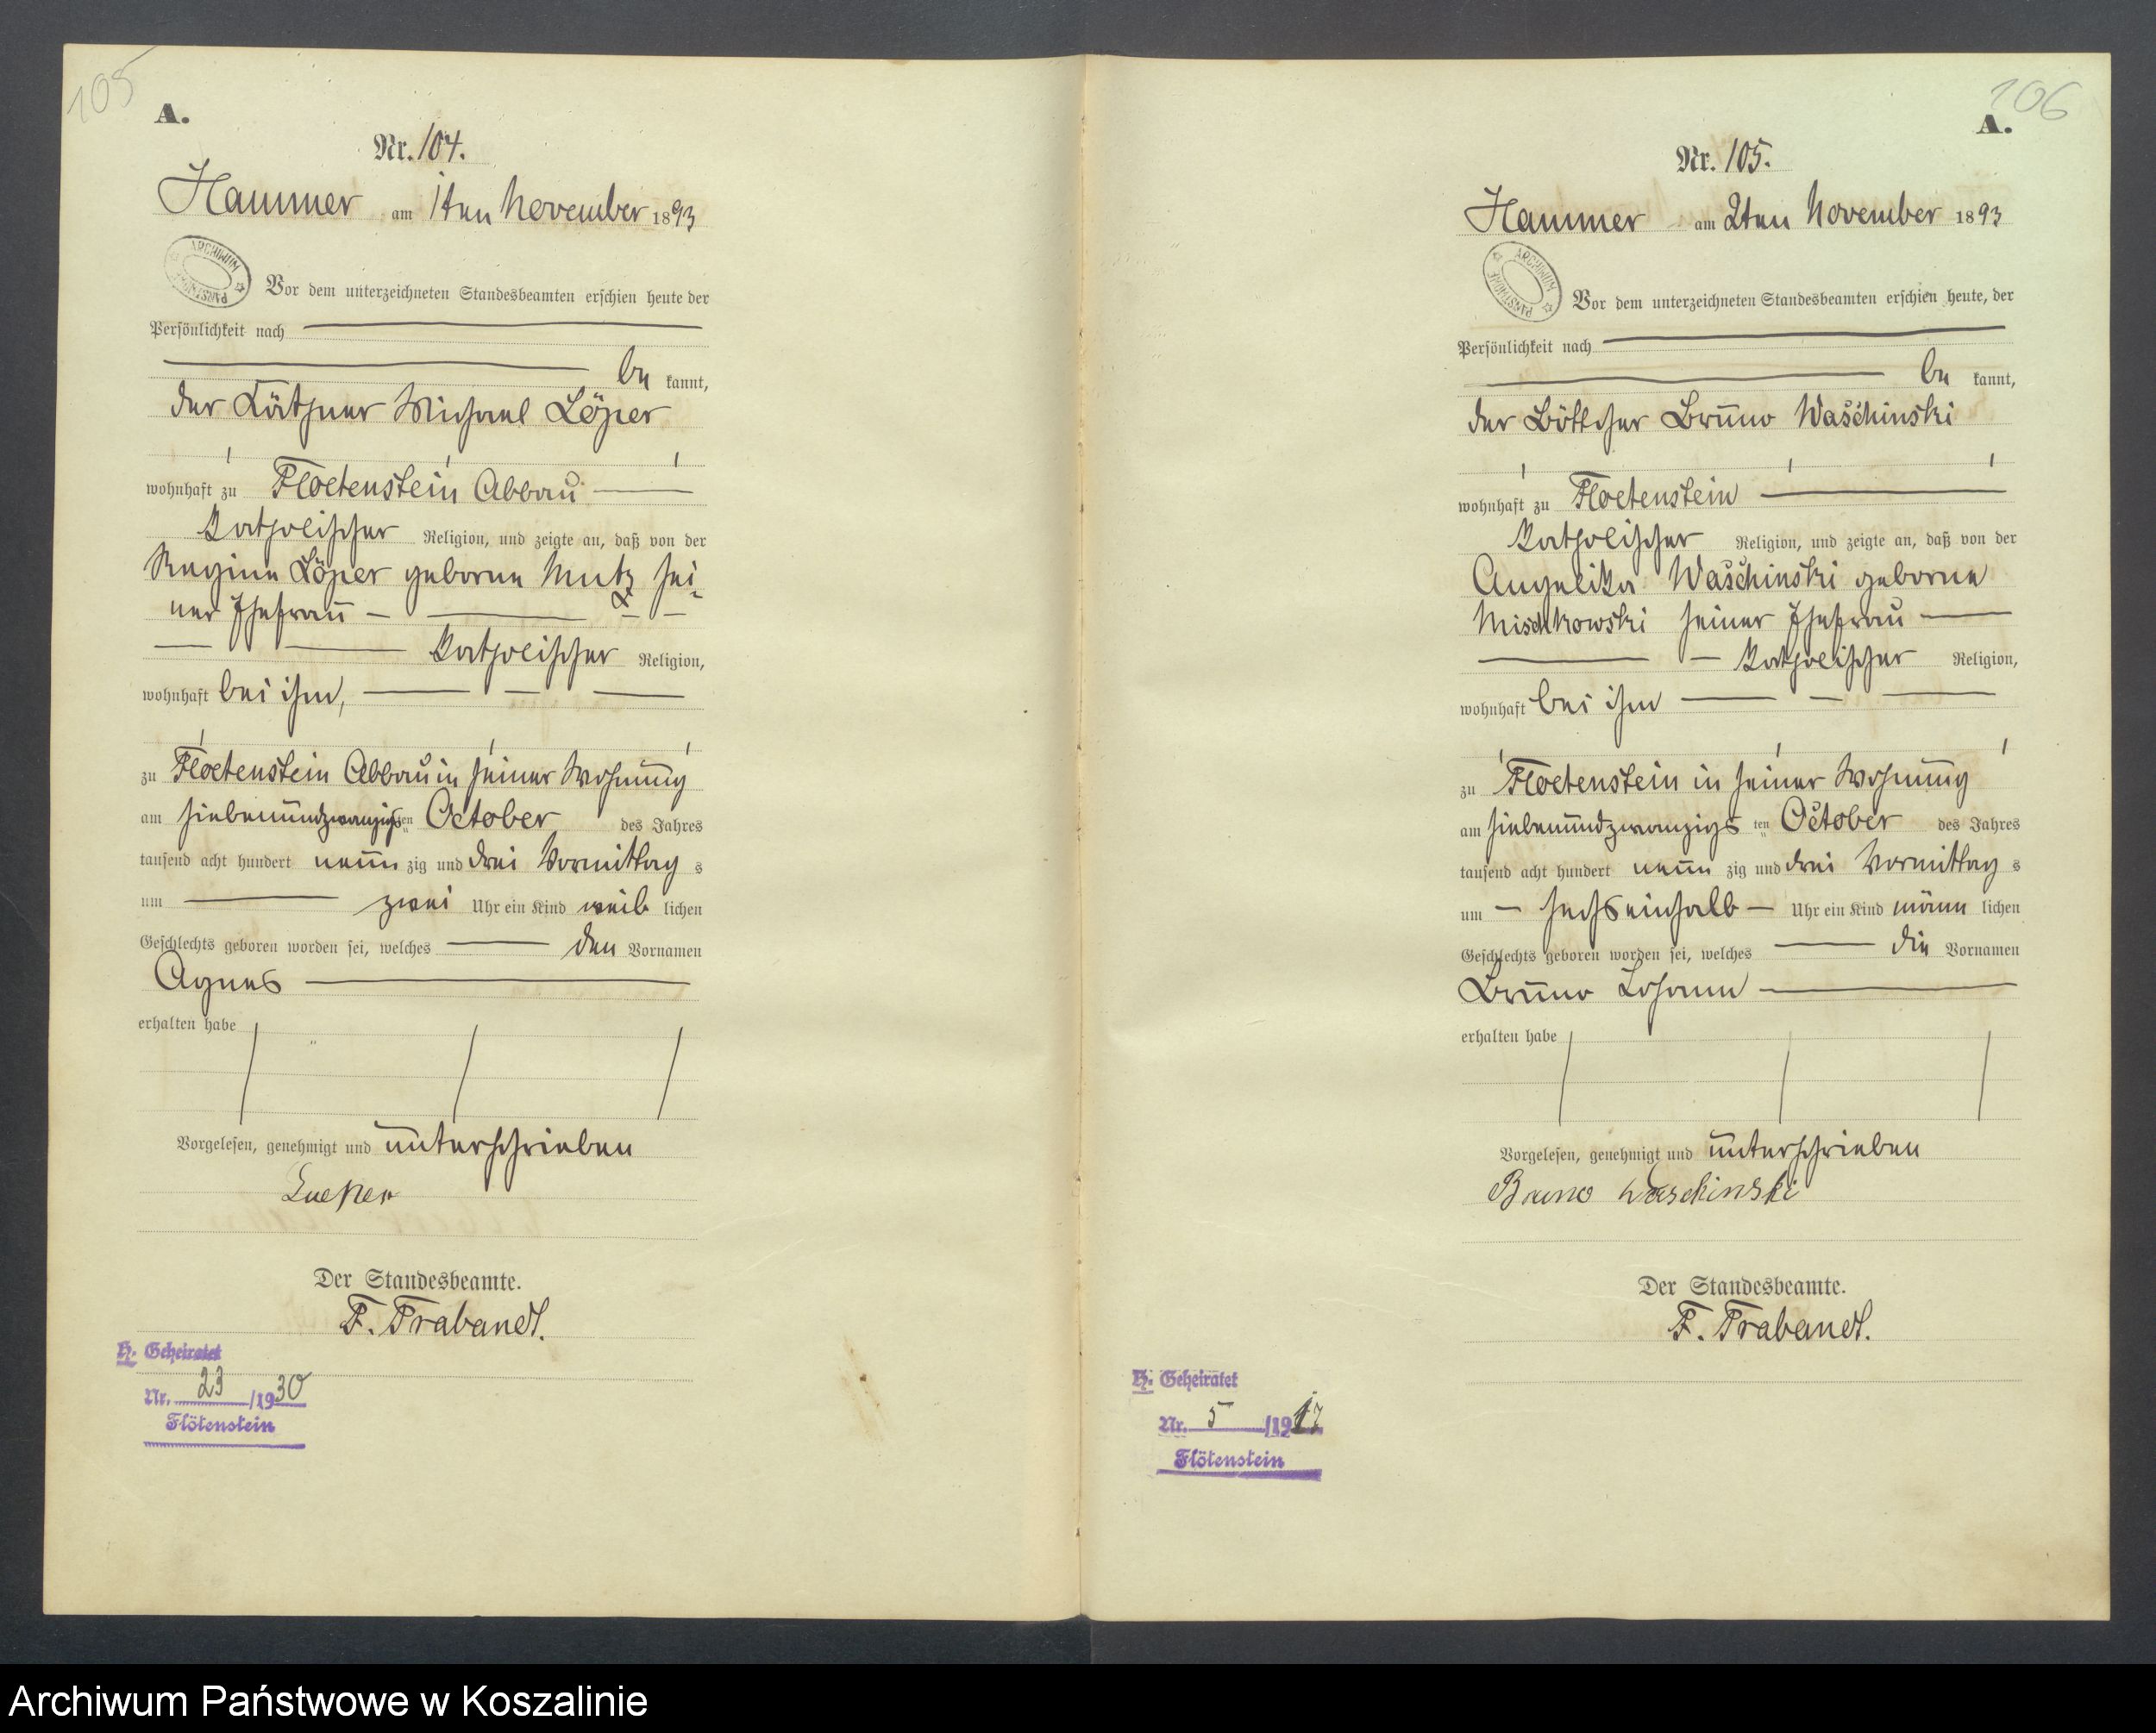 105
A.
Nr. 104.
Hammer am 1ten November 1893
ARCHIWUM PAŃSTWOWE
Vor dem unterzeichneten Standesbeamten erschien heute der
Persönlichkeit nach
be kannt,
der Käthner Michael Löper
wohnhaft zu Floetenstein Abbau
katholischer Religion, und zeigte an, daß von der
Regine Löper geborne Mutz sei-
ner Ehefrau
katholischer Religion,
wohnhaft bei ihm,
zu Floetenstein Abbau in seiner Wohnung
am siebenundzwanzigsten October des Jahres
tausend acht hundert neun zig und drei Vormittag s
um zwei Uhr ein Kind weib lichen
Geschlechts geboren worden sei, welches den Vornamen
Agnes
erhalten habe
Vorgelesen, genehmigt und unterschrieben
Lueper
Der Standesbeamte.
F. Trabandt.
H. Geheiratet
Nr. 23 /1930
Flötenstein
106
A.
Nr. 105.
Hammer am 2ten November 1893
ARCHIWUM PAŃSTWOWE
Vor dem unterzeichneten Standesbeamten erschien heute, der
Persönlichkeit nach
be kannt,
der Böttcher Bruno Waschinski
wohnhaft zu Floetenstein
katholischer Religion, und zeigte an, daß von der
Angelika Waschinski geborne
Mischkowski seiner Ehefrau
katholischer Religion,
wohnhaft bei ihm
zu Floetenstein in seiner Wohnung
am siebenundzwanzigs ten October des Jahres
tausend acht hundert neun zig und drei Vormittag s
um sechseinhalb Uhr ein Kind männ lichen
Geschlechts geboren worden sei, welches die Vornamen
Bruno Johann
erhalten habe
Vorgelesen, genehmigt und unterschrieben
Bruno Waschinski
Der Standesbeamte.
F. Trabandt.
H. Geheiratet
Nr. 5 /1917
Flötenstein
Archiwum Państwowe w Koszalinie